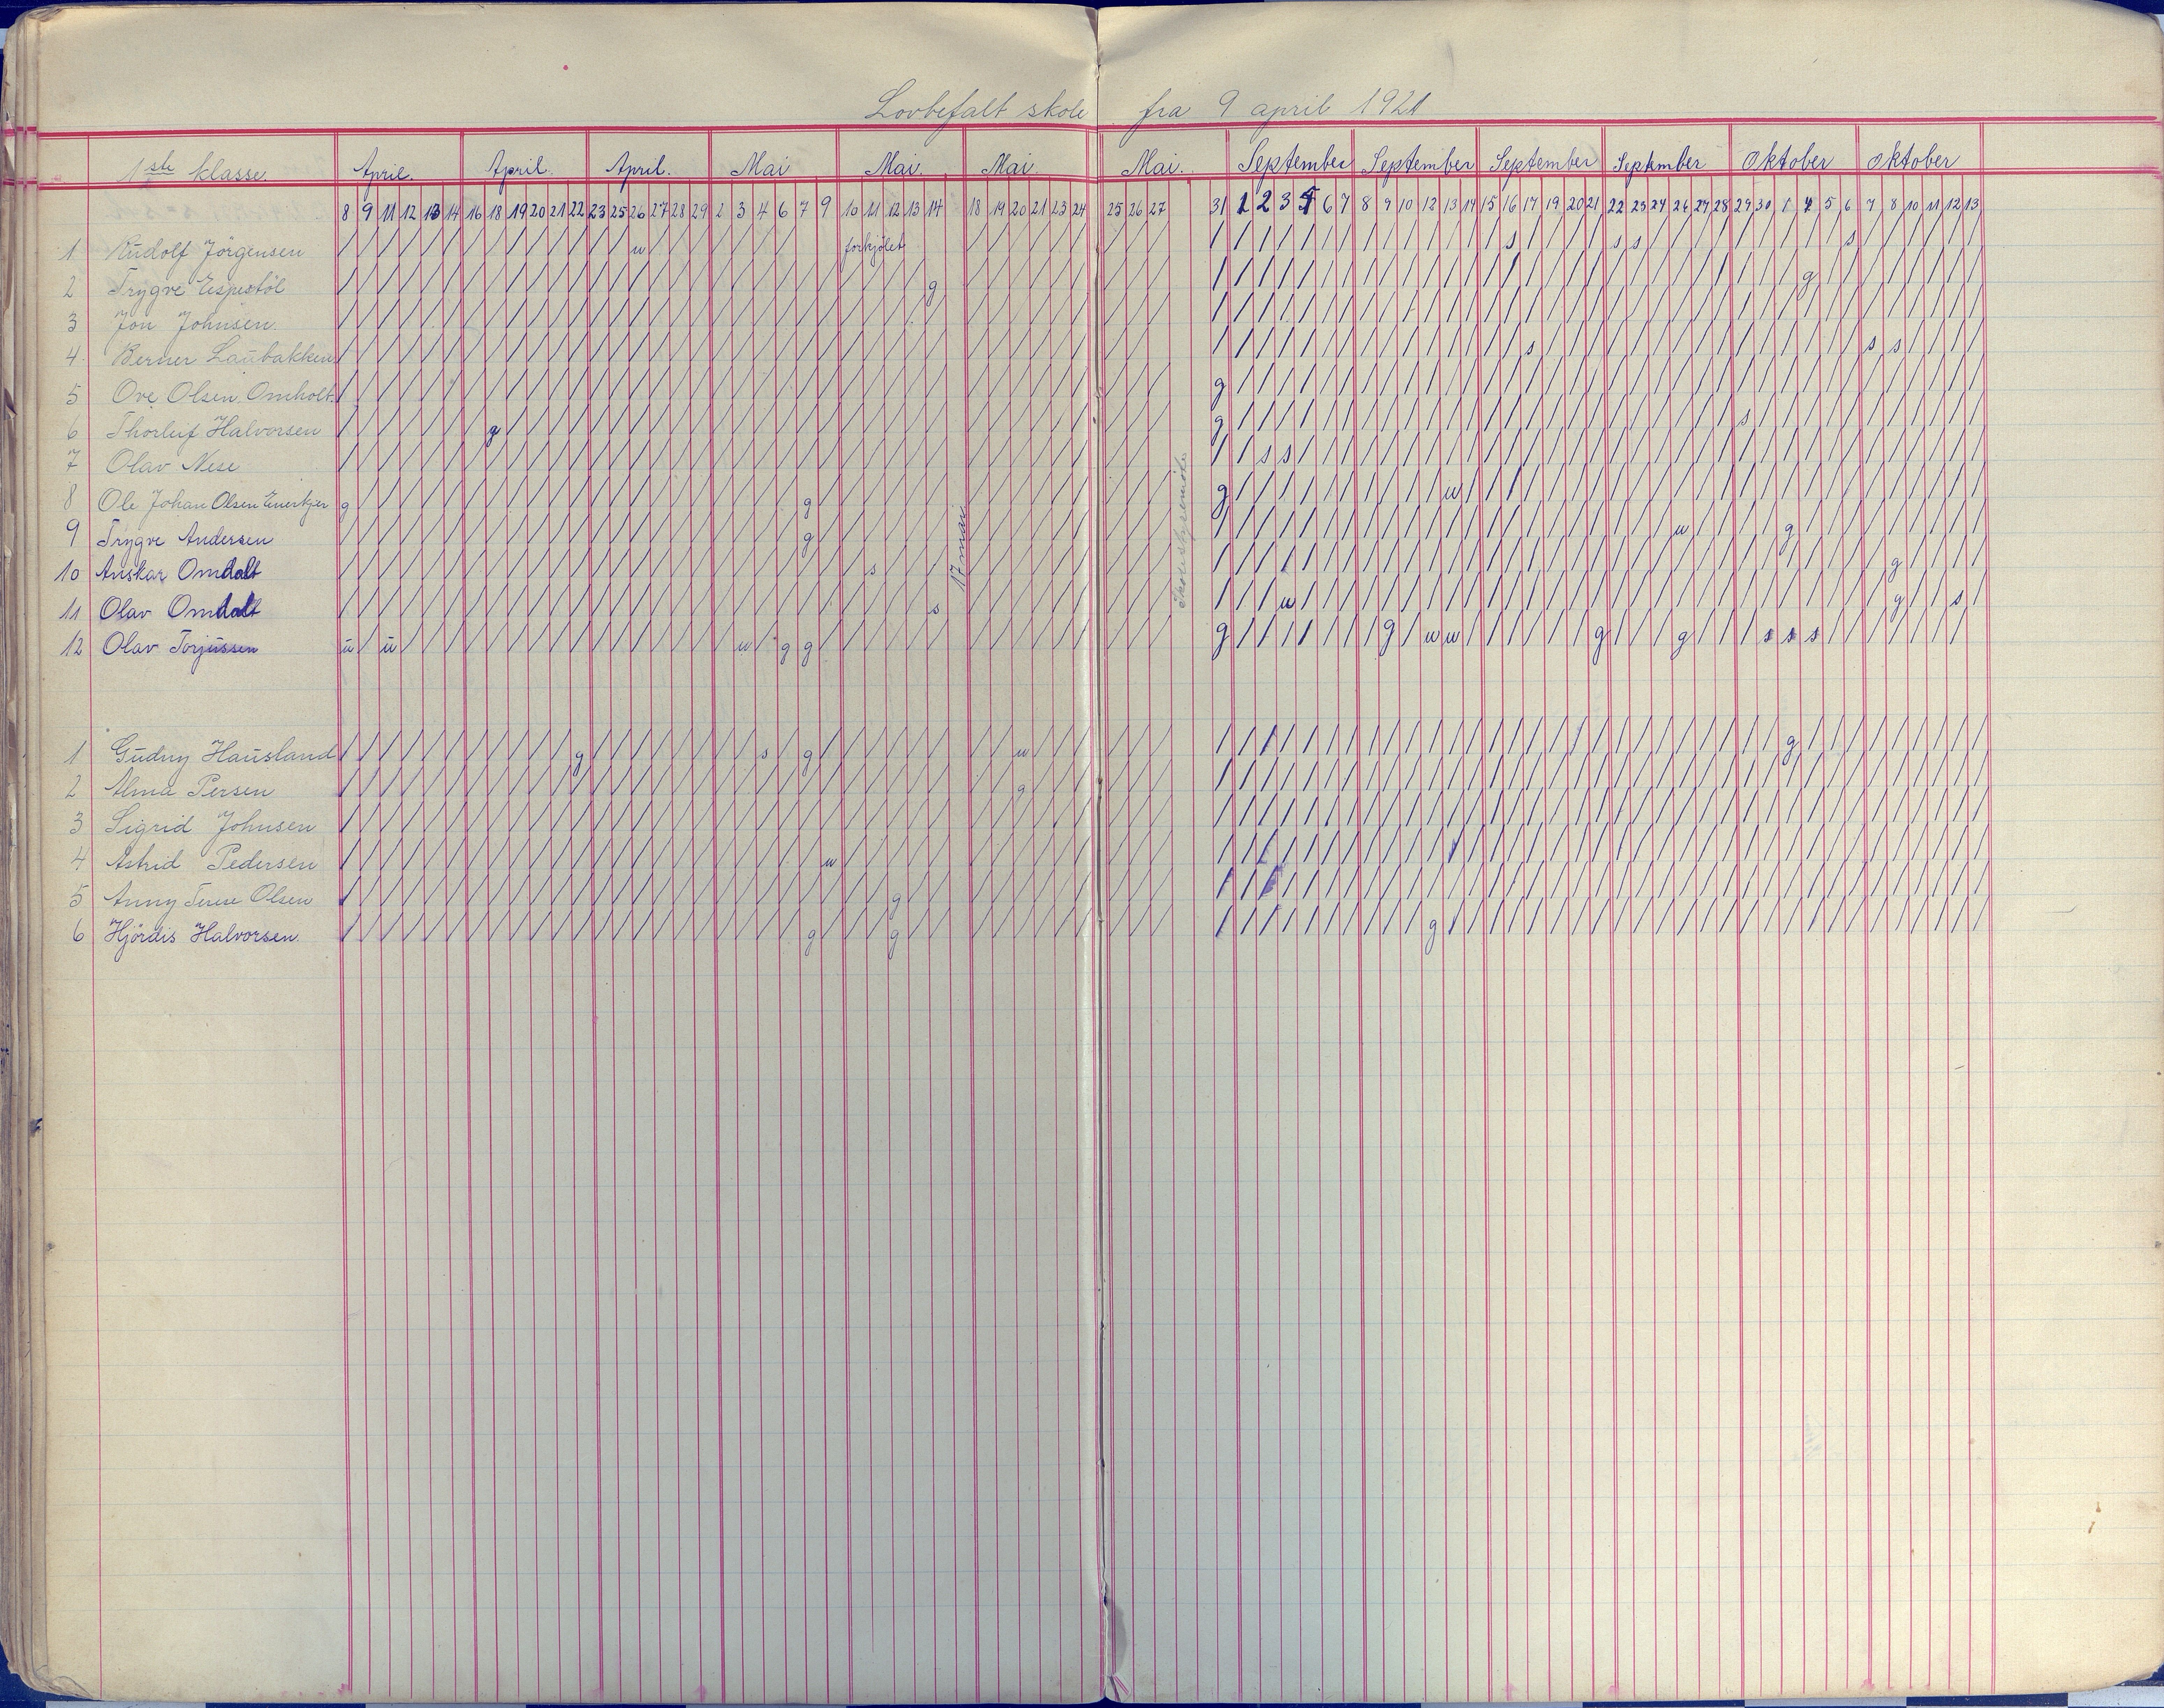 Lovbefalt skole fra 9 april 1921
1ste klasse. April. April. April. Mai Mai. Mai. Mai. September September September September Oktober Oktober
8 9 11 12 13 14 16 18 19 20 21 22 23 25 26 27 28 29 2 3 4 6 7 9 10 11 12 13 14 18 19 20 21 23 24 25 26 27 31 1 2 3 5 6 7 8 9 10 12 13 14 15 16 17 19 20 21 22 23 24 26 27 28 29 30 1 4 5 6 7 8 10 11 12 13
1 Rudolf Jörgensen / u forkjølet s s s s
2 Trygve Espestöl / g g
3 Jon Johnsen
4. Berner Laubakken s s s
5 Ove Olsen Omholt. g
6 Thorluf Halvorsen g g s
7 Olav Nese s s
8 Ole Johan Olsen Enerkjer g g g u
9 Trygve Andersen g u g
10 Anskar Omdalt s g
11 Olav Omdalt s u g s
12 Olav Torjussen u u u g g g g u u g g s s s
17 mai
Skolestyremöte
1 Gudny Hausland g s g u g
2 Alma Persen g
3 Sigrid Johnsen
4 Astrid Pedersen u
5 Anny Terese Olsen g
6 Hjördis Halvorsen. g g g